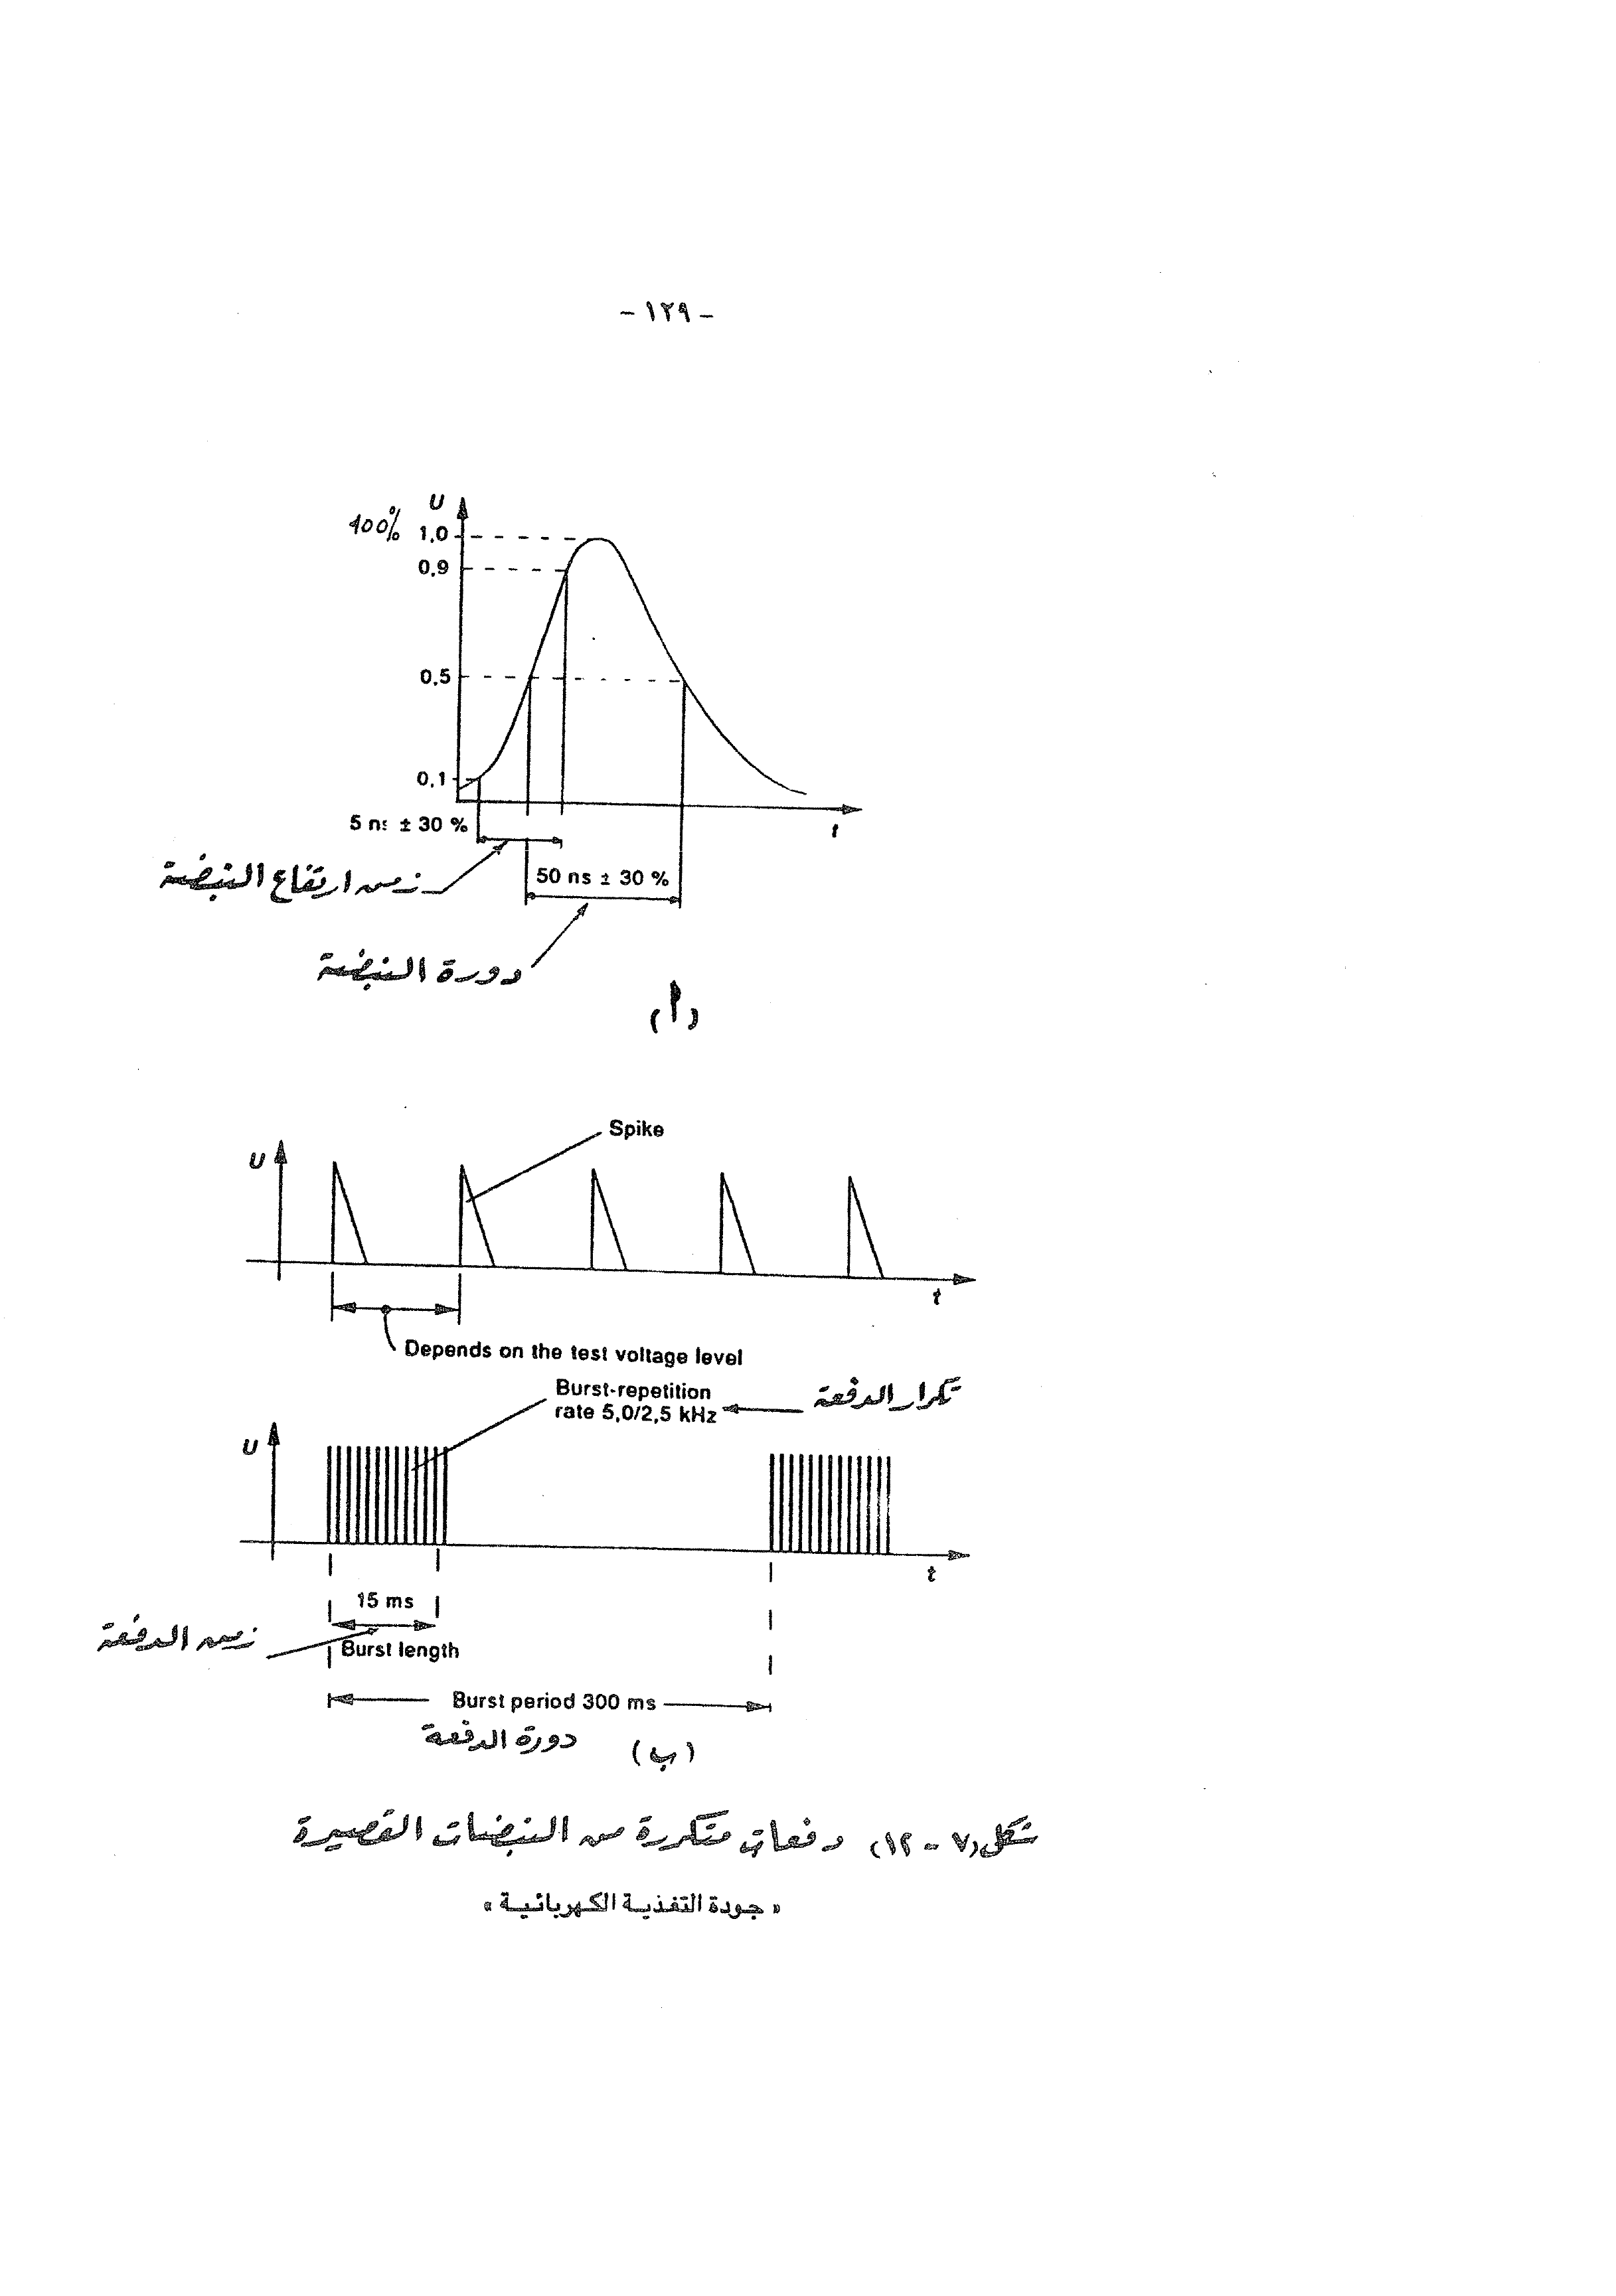 - ١٢٩ -
U
100% 1,0
0,9
0,5
0,1
t
5 ns ± 30 %
زمن ارتفاع النبضة
50 ns ± 30 %
دورة النبضة
(أ)
Spike
U
t
Depends on the test voltage level
Burst-repetition
rate 5,0/2,5 kHz
تكرار الدفعة
U
t
15 ms
زمن الدفعة
Burst length
Burst period 300 ms
دورة الدفعة
(ب)
شكل (٧ - ١٢) دفعات متكررة من النبضات القصيرة
« جودة التغذية الكهربائية »